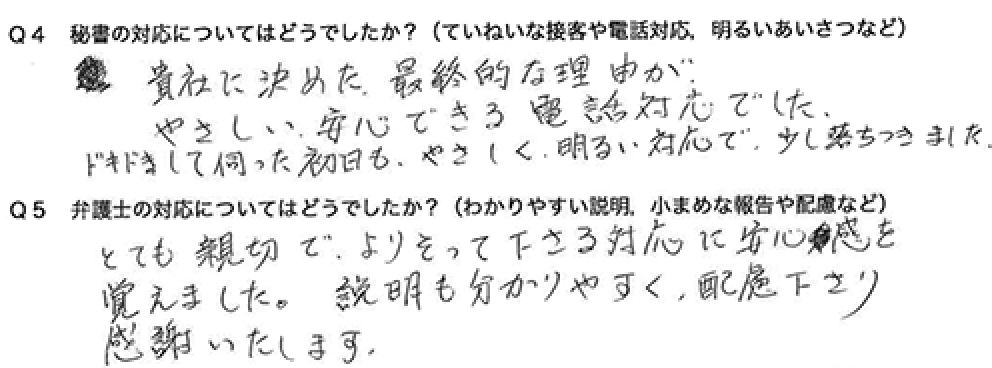 Q4 秘書の対応についてはどうでしたか?(ていねいな接客や電話対応，明るいあいさつなど)
貴社に決めた、最終的な理由が、
やさしい、安心できる電話対応でした、
ドキドキして伺った初日も、やさしく、明るい対応で、少し落ちつきました、
Q5 弁護士の対応についてはどうでしたか?(わかりやすい説明，小まめな報告や配慮など)
とても親切で、よりそって下さる対応に安心感を
覚えました。説明も分かりやすく、配慮下さり
感謝いたします、